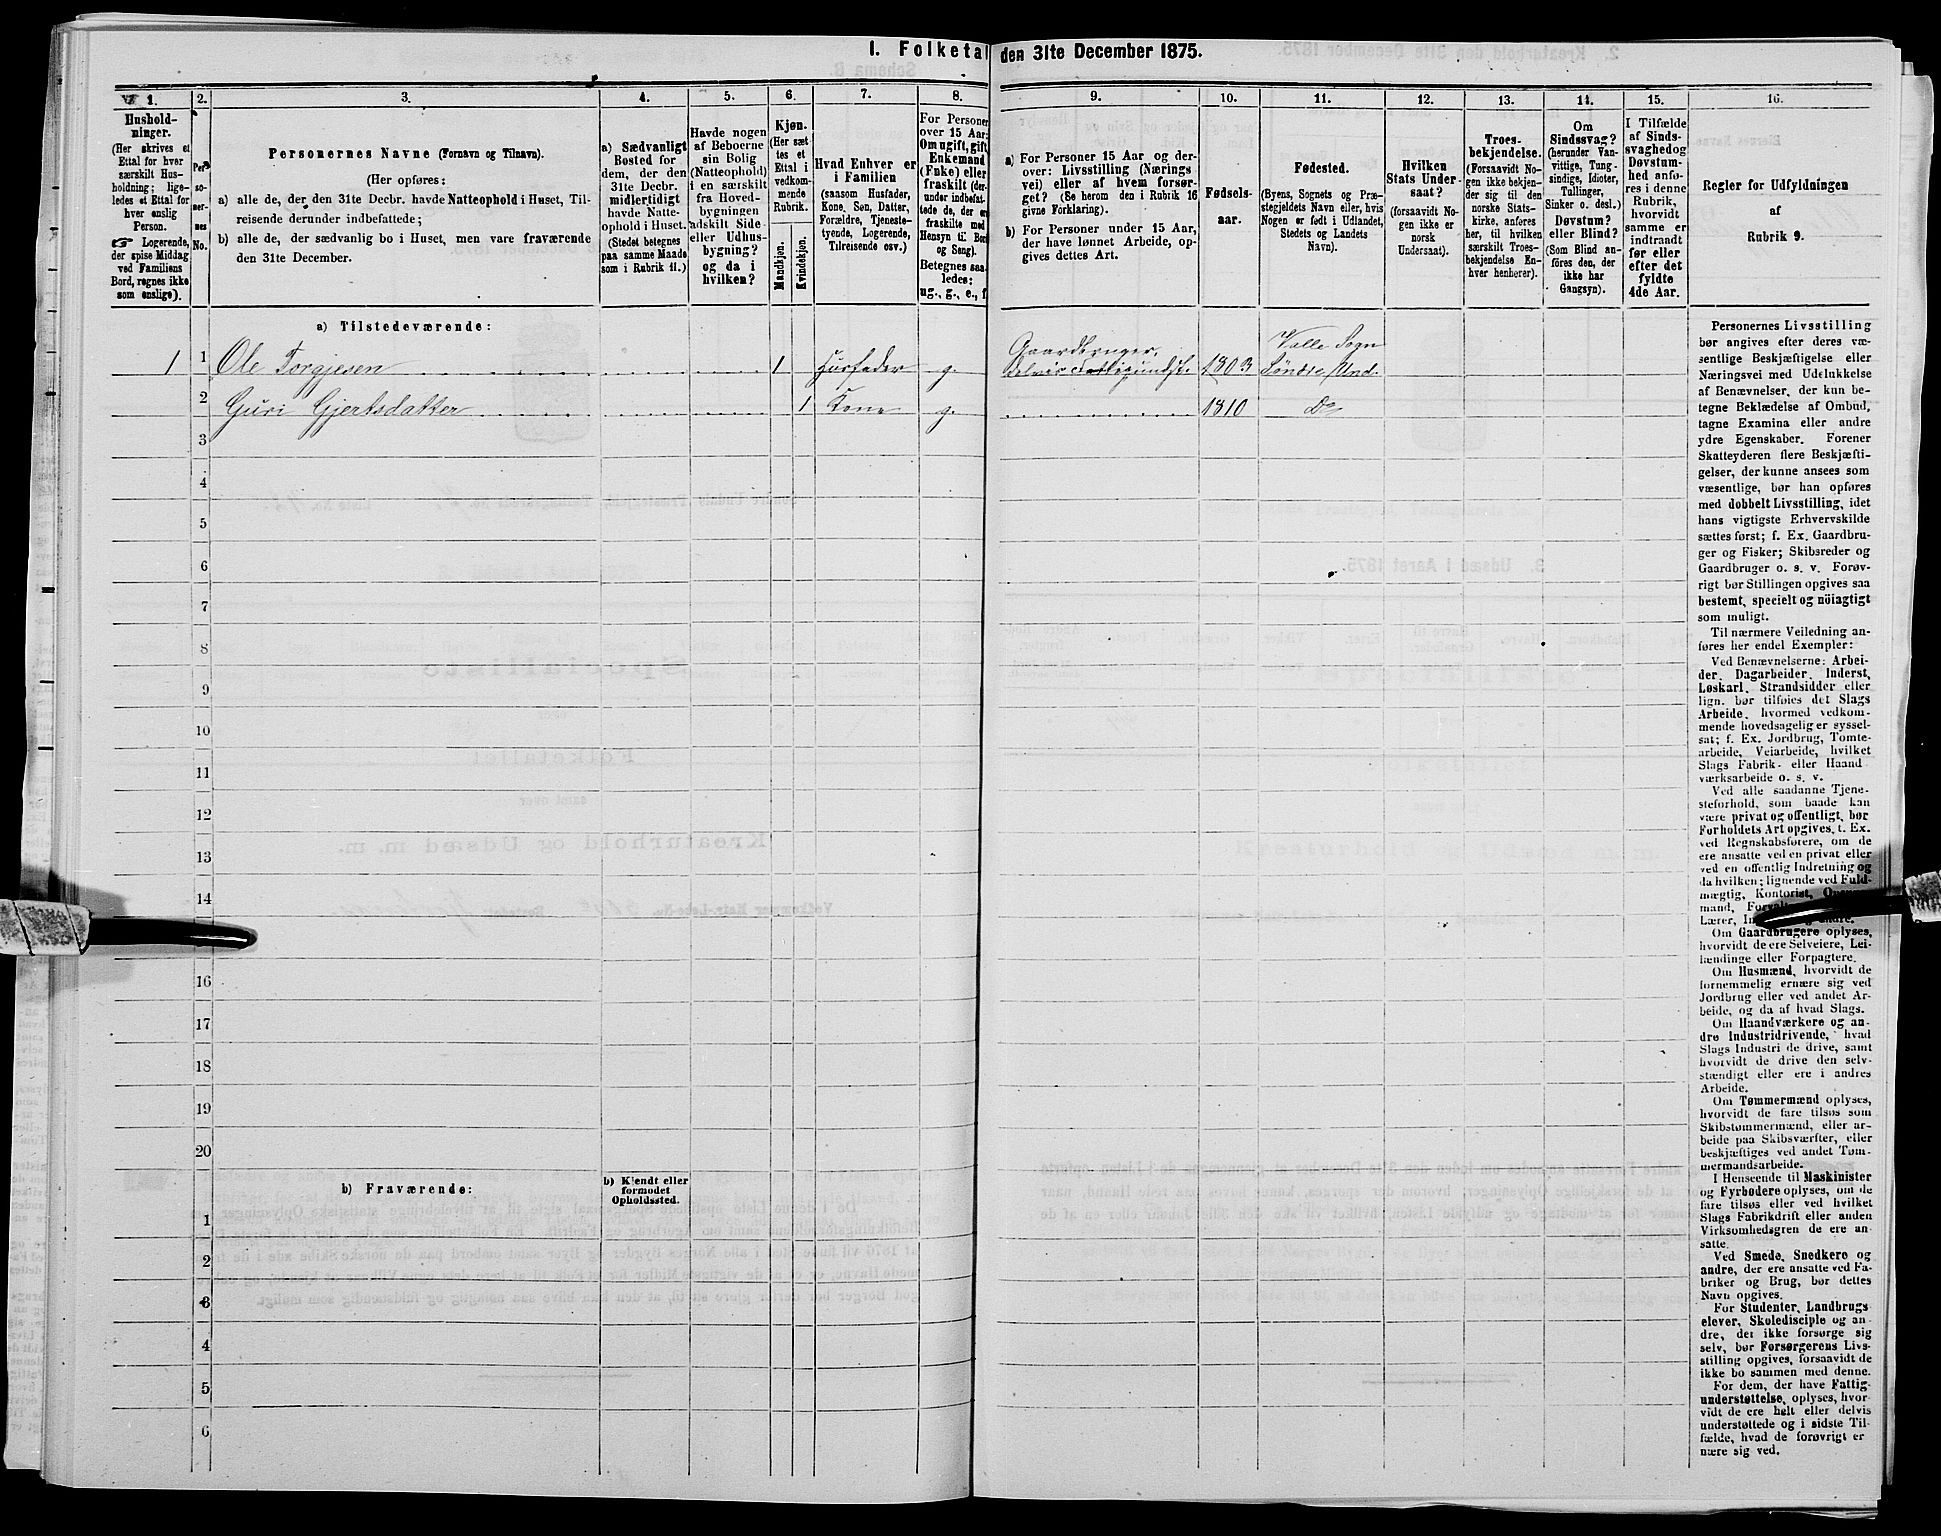 1. Folketal den 31te December 1875.
1.
Hushold-
ninger.
(Her skrives et
Ettal for hver
særskilt Hus-
holdning; lige-
ledes et Ettal for
hver enslig
Person.
Logerende,
der spise Middag
ved Familiens
Bord, regnes ikke
som enslige).
2.
Per-
so-
ner-
nes
No.
3.
Personernes Navne (Fornavn og Tilnavn).
(Her opføres:
a) alle de, der den 31te Decbr. havde Natteophold i Huset, Til-
reisende derunder indbefattede;
b) alle de, der sædvanlig bo i Huset, men vare fraværende
den 31te December.
4.
a) Sædvanligt
Bosted for
dem, der den
31te Decbr.
midlertidigt
havde Natte-
ophold i Huset.
(Stedet betegnes
paa samme Maade
som i Rubrik 11.)
5.
Havde nogen
af Beboerne
sin Bolig
(Natteophold)
i en særskilt
fra Hoved-
bygningen
adskilt Side-
eller Udhus-
bygning?
og da i
hvilken?
6.
Kjøn.
(Her sæt-
tes et
Ettal i
vedkom-
mende
Rubrik.
Mandkjøn.
Kvindekjøn.
7.
Hvad Enhver er
i Familien
(saasom Husfader,
Kone, Søn, Datter,
Forældre, Tjeneste-
tyende, Logerende,
Tilreisende osv.)
8.
For Personer
over 15 Aar:
Om ugift, gift,
Enkemand
(Enke) eller
fraskilt (der-
under indbefat-
tede de, der ere
fraskilte med
Hensyn til Bord
og Seng).
Betegnes saa-
ledes:
ug., g., e., f.
9.
a) For Personer 15 Aar og der-
over: Livsstilling (Nærings
vei) eller af hvem forsør-
get? (Se herom den i Rubrik 16
givne Forklaring).
b) For Personer under 15 Aar,
der have lønnet Arbeide, op-
gives dettes Art.
10.
Fødsels-
aar.
11.
Fødested.
(Byens, Sognets og Præ-
stegjeldets Navn eller, hvis
Nogen er født i Udlandet,
Stedets og Landets
Navn).
12.
Hvilken
Stats Under-
saat?
(forsaavidt No-
gen ikke er
norsk
Undersaat).
13.
Troes-
bekjendelse.
(Forsaavidt No-
gen ikke bekjen-
der sig til den
norske Stats-
kirke, anføres
her, til hvilken
særskilt Troes-
bekjendelse En-
hver henhører).
14.
Om
Sindssvag?
(herunder Van-
vittige, Tung-
sindige, Idioter,
Tullinger,
Sinker o. desl.)
Døvstum?
eller Blind?
(Som Blind an-
føres den, der
ikke har
Gangsyn).
15.
I Tilfælde
af Sinds-
svaghed og
Døvstum-
hed anfø-
res i denne
Rubrik,
hvorvidt
samme er
indtraadt
før eller
efter det
fyldte
4de Aar.
16.
Regler for Udfyldningen
af
Rubrik 9.
a) Tilstedeværende:
Valle Sogn
Gaardbruger,
1 1 Ole Torgjesen 1 Husfader g. delvis Fattigundst. 1803 Søndre Und.
2 Guri Gjertsdatter 1 Kone g. 1810 Do
3
4
5
6
7
8
9
10
11
12
13
14
16
17
18
19
20
b) Fraværende:
b) Kjendt eller
formodet
Opholdssted.
1
2
3
4
5
6
Personernes Livsstilling
bør angives efter deres væ-
sentlige Beskjæftigelse eller
Næringsvei med Udelukkelse
af Benævnelser, der kun be-
tegne Beklædelse af Ombud,
tagne Examina eller andre
ydre Egenskaber. Forener
Skatteyderen flere Beskjæfti-
gelser, der kunne ansees som
væsentlige, bør han opføres
med dobbelt Livsstilling, idet
hans vigtigste Erhvervskilde
sættes først; f. Ex. Gaardbru-
ger og Fisker; Skibsreder og
Gaardbruger o. s. v. Forøv-
rigt bør Stillingen opgives saa
bestemt, specielt og nöiagtigt
som muligt.
Til nærmere Veiledning an-
føres her endel Exempler:
Ved Benævnelserne: Arbei-
der, Dagarbeider, Inderst,
Løskarl, Strandsidder eller
lign. bør tilføies det Slags
Arbeide, hvormed vedkom-
mende hovedsagelig er syssel-
sat; f. Ex. Jordbrug, Tomte-
arbeide, Veiarbeide, hvilket
Slags Fabrik- eller Haand
værksarbeide o. s. v.
Ved alle saadanne Tjene-
steforhold, som baade kan
være privat og offentligt, bør
Forholdets Art opgives, t. Ex.
ved Regnskabsførere, om de
ere ansatte ved en privat eller
ved en offentlig Indretning og
da hvilken; lignende ved Fuld-
mægtig, Kontorist,
mand,
Lærer,
Om Gaardbrugere oplyses,
hvorvidt de ere Selveiere, Lei-
lændinge eller Forpagtere.
Om Husmænd, hvorvidt de
fornemmelig ernære sig ved
Jordbrug eller ved andet Ar-
beide, og da af hvad Slags.
Om Haandværkere og an-
dre Industridrivende, hvad
Slags Industri de drive, samt
hvorvidt de drive den selv-
stændigt eller ere i andres
Arbeide.
Om Tømmermænd oplyses,
hvorvidt de fare tilsøs som
Skibstømmermænd, eller ar-
beide paa Skibsværfter, eller
beskjæftiges ved andet Tøm-
mermandsarbeide.
I Henseende til Maskinister
og Fyrbødere oplyses, om de
fare tilsøs eller ved hvilket
Slags Fabrikdrift eller anden
Virksomhedsgren de ere an-
satte.
Ved Smede, Snedkere og
andre, der ere ansatte ved Fa-
briker og Brug, bør dettes
Navn opgives.
For Studenter, Landbrugs
elever, Skoledisciple og an-
dre, der ikke forsørge sig
selv, bør Forsørgerens Livs-
stilling opgives, forsaavidt de
ikke bo sammen med denne.
For dem, der have Fattig-
understøttelse, oplyses, hvor-
vidt de ere helt eller delvis
understøttede og i sidste Til-
fælde, hvad de forøvrigt er
nære sig ved.